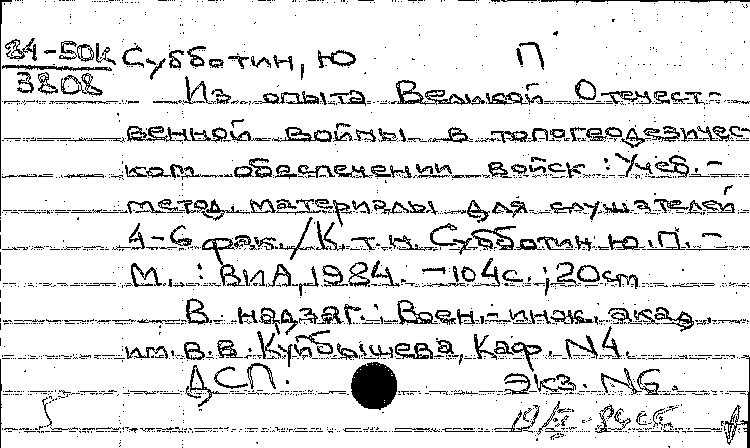 84-50к Субботин, Ю П
3808
Из опыта Великой Отечест-
венной войны в топогеодезичес
ком обеспечении войск : Учеб.-
метод. материалы для слушателей
4-6 фак. / К. т. н. Субботин Ю.П. -
М. : ВИА, 1984. - 104 с. ; 20 см
В надзаг.: Воен.-инж. акад.
им. В.В. Куйбышева, Каф. N4.
ДСП. Экз. N6.